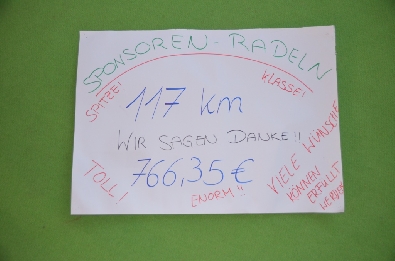 SPONSOREN-RADELN
SPITZE!
KLASSE!
117 km
WIR SAGEN DANKE!!
766,35 €
TOLL!
ENORM!!
VIELE WÜNSCHE
KÖNNEN
ERFÜLLT
WERDEN